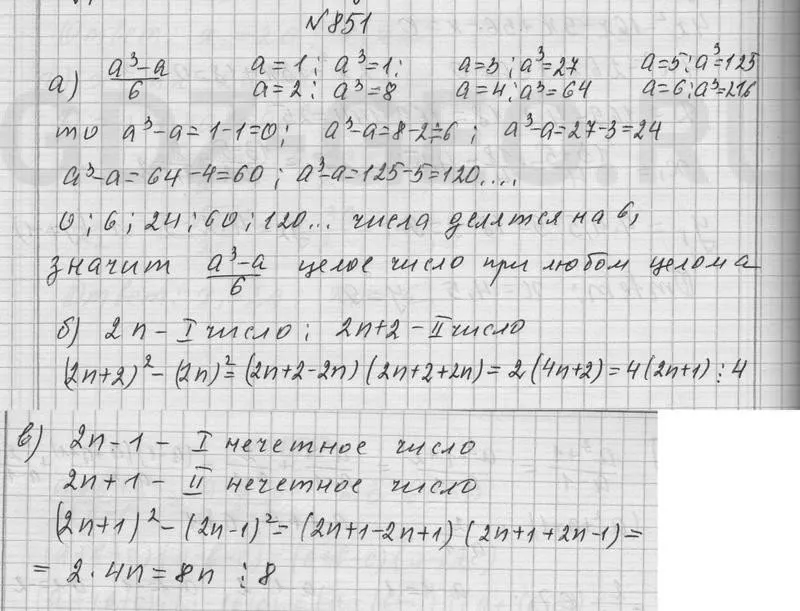 №851
а) a³-a/6 a=1; a³=1; a=3; a³=27 a=5; a³=125
a=2; a³=8 a=4; a³=64 a=6; a³=216
то a³-a=1-1=0; a³-a=8-2=6; a³-a=27-3=24
a³-a=64-4=60; a³-a=125-5=120....
0; 6; 24; 60; 120... числа делятся на 6,
значит a³-a/6 целое число при любом целом a
б) 2n - I число; 2n+2 - II число
(2n+2)²-(2n)²=(2n+2-2n)(2n+2+2n)=2(4n+2)=4(2n+1)⋮4
в) 2n-1 - I нечетное число
2n+1 - II нечетное число
(2n+1)²-(2n-1)²=(2n+1-2n+1)(2n+1+2n-1)=
=2·4n=8n ⋮8